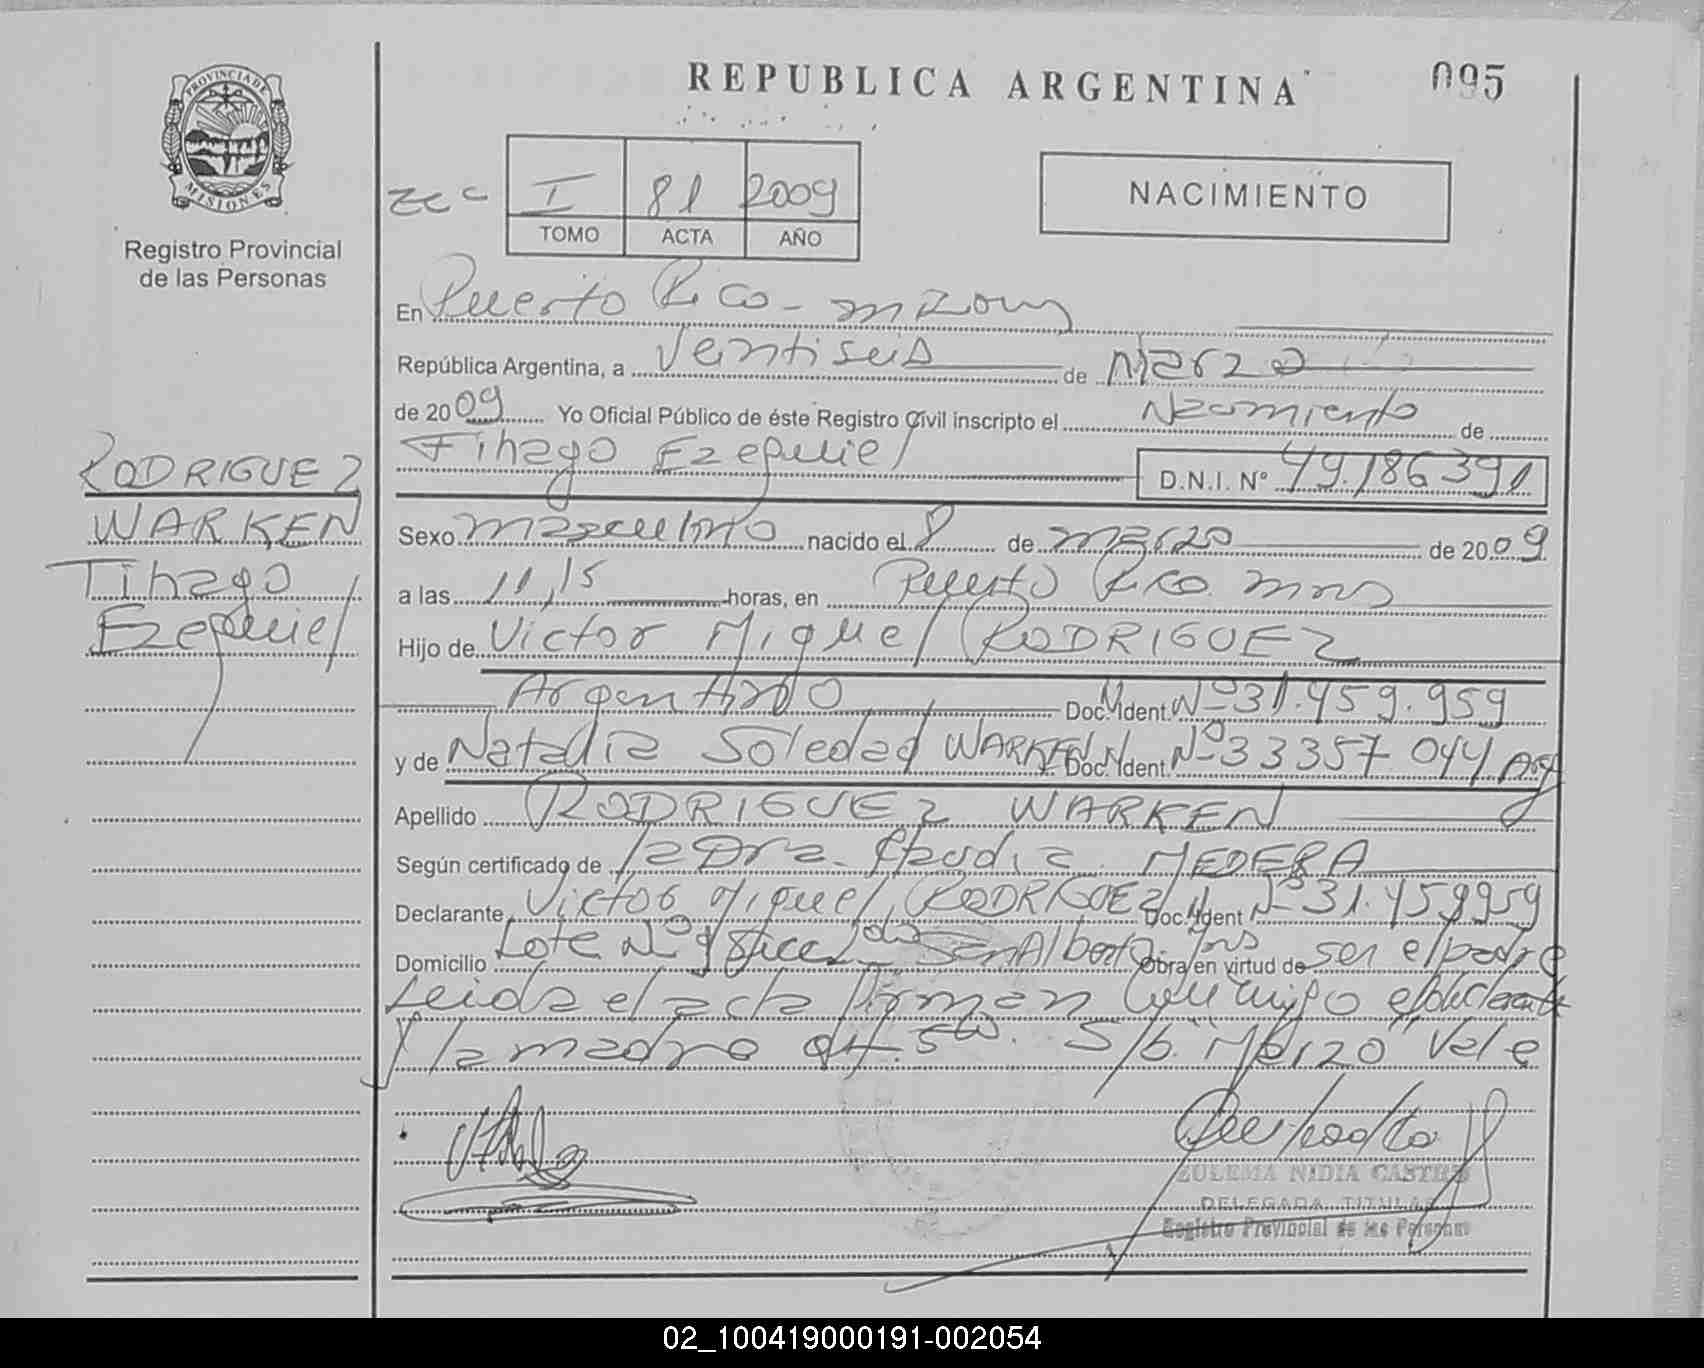 REPUBLICA ARGENTINA
095
PROVINCIA DE
MISIONES
Registro Provincial
de las Personas
I 81 2009
TOMO ACTA AÑO
NACIMIENTO
En Puerto Rico - Misiones
República Argentina, a Veintiseis de Marzo
de 2009 Yo Oficial Público de éste Registro Civil inscripto el Nacimiento de
Tihago Ezequiel D.N.I. Nº 49.186391
RODRIGUEZ
WARKEN
Tihago
Ezequiel
Sexo Masculino nacido el 8 de marzo de 2009
a las 11,15 horas, en Puerto Rico mns
Hijo de Victor Miguel RODRIGUEZ
Argentino Doc. Ident. Nº 31.459.959
y de Natalia Soledad WARKEN Doc. Ident. Nº 33357044 Arg
Apellido RODRIGUEZ WARKEN
Según certificado de la Dra. Claudia MEDERA
Declarante Victor Miguel RODRIGUEZ Doc. Ident Nº 31.459959
Domicilio Lote Nº 9 San Alberto Mns Obra en virtud de ser el padre
Leida el acta firman conmigo el declarante
y la madre S/b "Marzo" Vale
ZULEMA NIDIA CASTRO
DELEGADA TITULAR
Registro Provincial de las Personas
02_100419000191-002054